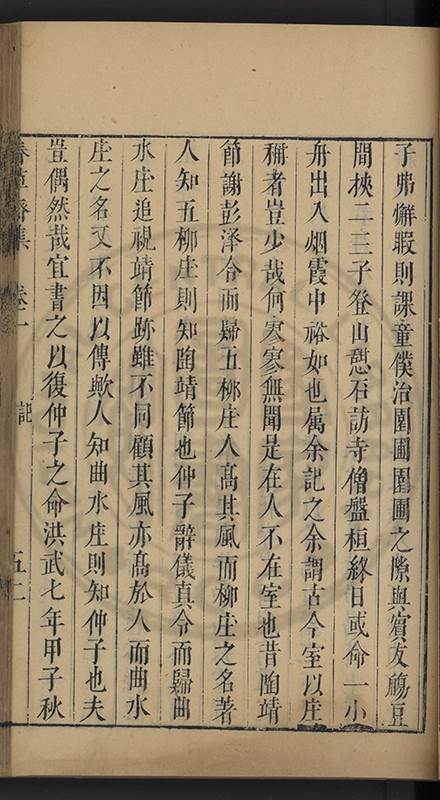 子弗懈暇則課童僕治園圃園圃之隙與賓友觴豆
間挾二三子登山憇石訪寺僧盤桓終日或命一小
舟出入烟霞中裕如也属余記之余謂古今室以庄
稱者豈少哉何寥寥無聞是在人不在室也昔陶靖
節謝彭泽令而歸五栁庄人髙其風而栁庄之名著
人知五栁庄則知陶靖節也仲子辭儀真令而歸曲
水庄追視靖節跡雖不同顧其風亦髙於人而曲水
庄之名又不因以傳歟人知曲水庄則知仲子也夫
豈偶然哉宜書之以復仲子之命洪武七年甲子秋
春草齋集 卷一 記 五二